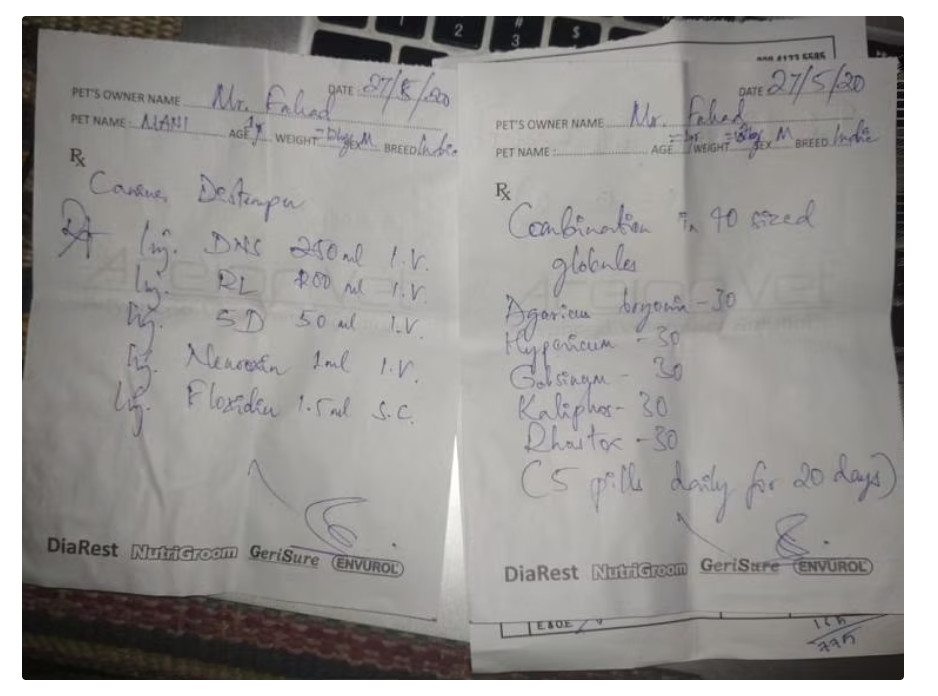 PET'S OWNER NAME Mr. Fahad DATE 27/5/20
PET NAME: MANI AGE 1y WEIGHT SEX M BREED Indie
Rx
Canine Distemper
Inj. DNS 250 ml I.V.
Inj. RL 200 ml I.V.
Inj. 5D 50 ml I.V.
Inj. 1ml I.V.
Inj. Floxidin 1.5 ml S.C.
DiaRest NutriGroom GeriSure ENVUROL
DATE 27/5/20
PET'S OWNER NAME Mr. Fahad
PET NAME: AGE WEIGHT SEX M BREED Indie
Rx
Combination in 40 sized
globules
Agaricus - 30
Hypericum - 30
Gelsinym - 30
Kaliphos - 30
Rhustox - 30
(5 pills daily for 20 days)
DiaRest NutriGroom GeriSure ENVUROL
E&OE